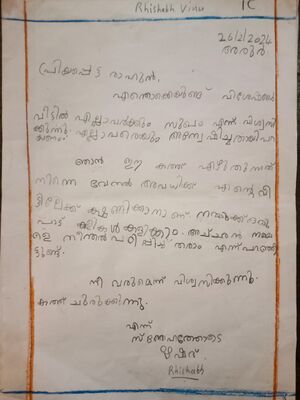 Rhishabh Vinu
1C
26/2/2024
അരൂർ.
പ്രിയപ്പെട്ട രാഹുൻ,
എന്തൊക്കെയുണ്ട് വിശേഷങ്ങൾ
വീട്ടിൽ എല്ലാവർക്കും സുഖം എന്ന് വിശ്വസി
ക്കുന്നു. എല്ലാവരെയും അന്വേഷിച്ചതായി പറ
യണം.
ഞാൻ ഈ കത്ത് എഴുതുന്നത്
നിന്നെ വേനൽ അവധിക്ക് എന്റെ വീ
ട്ടിലേക്ക് ക്ഷണിക്കാനാണ്. നമുക്കൊരു
പാട് കളികൾ കളിക്കാം. അച്ഛൻ നമ്മ
ളെ നീന്തൽ പഠിപ്പിച്ച് തരാം എന്ന് പറഞ്ഞി
ട്ടുണ്ട്.
നീ വരുമെന്ന് വിശ്വസിക്കുന്നു.
കത്ത് ചുരുക്കുന്നു.
എന്ന്
സ്നേഹത്തോടെ
ഋഷഭ്
Rhishabh